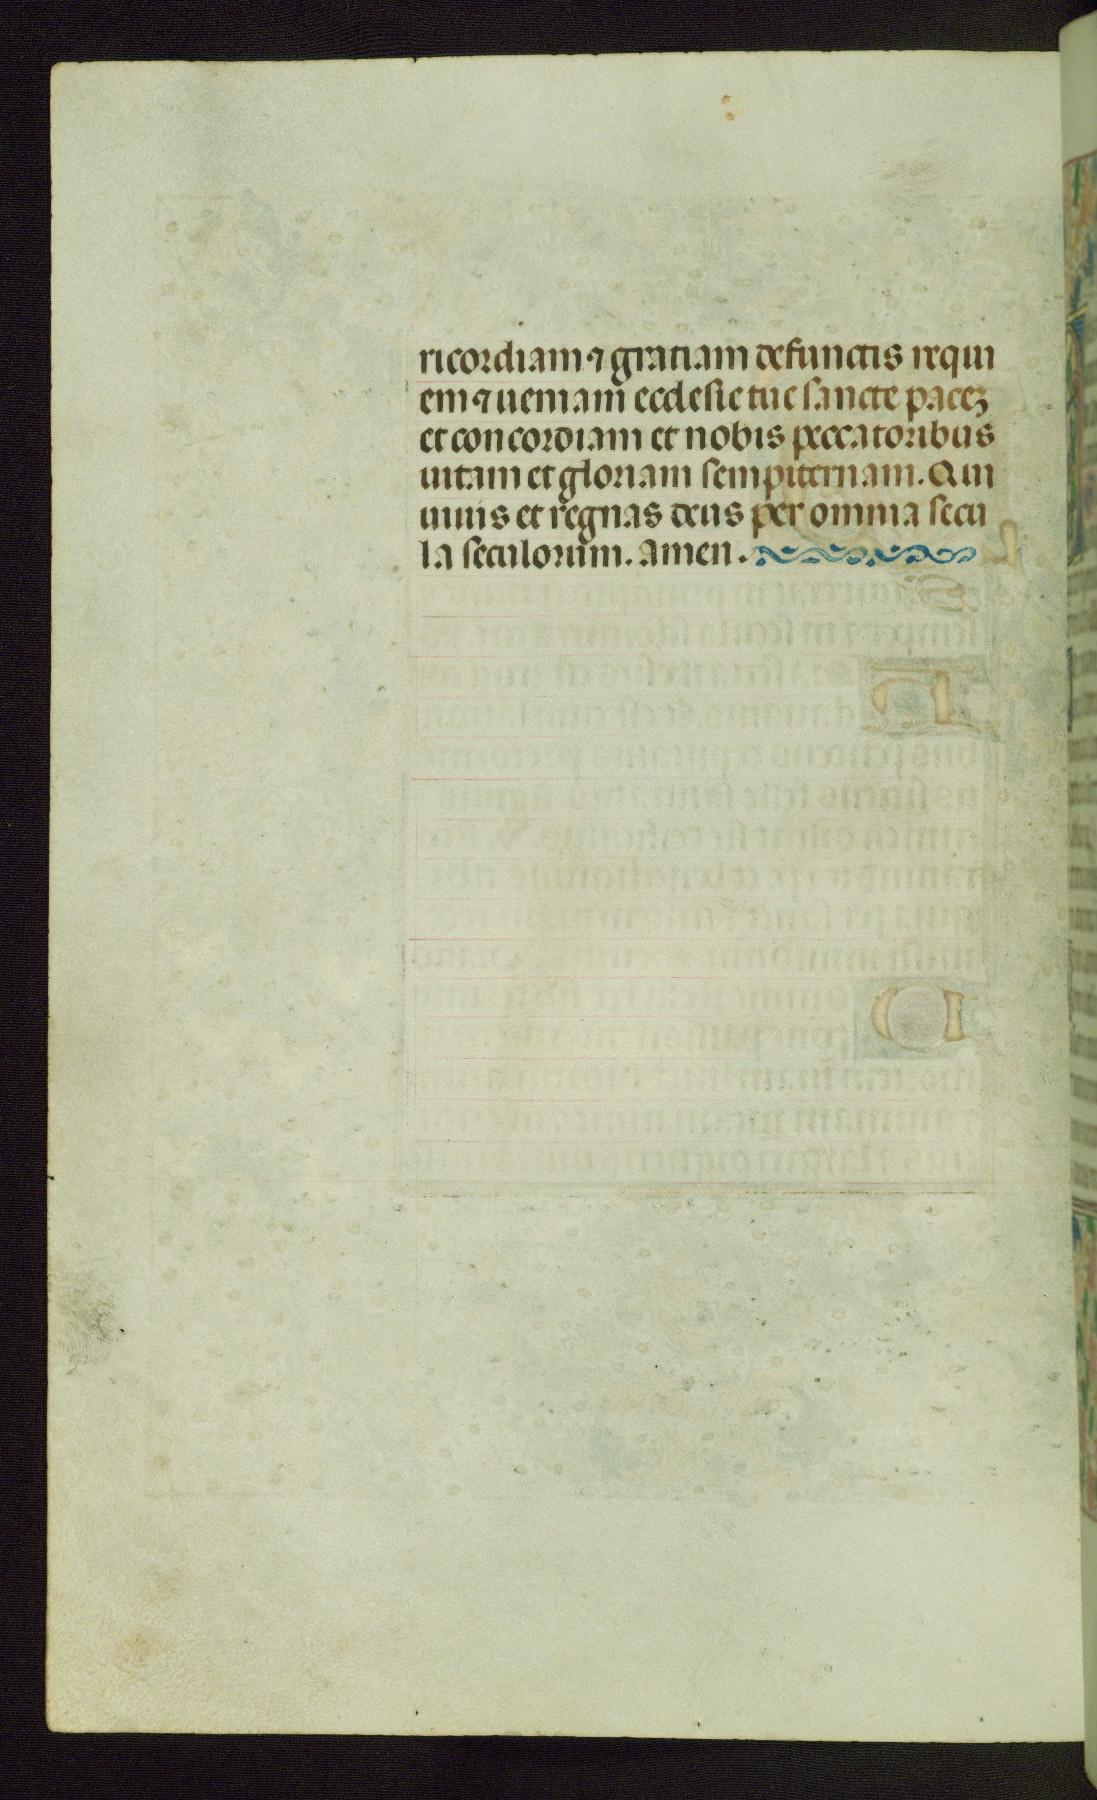 ricordiam ⁊ gratiam defunctis requi
em ⁊ ueniam ecclesie tue sancte pacez
et concordiam et nobis peccatoribus
uitam et gloriam sempiternam. Qui
uiuis et regnas deus per omnia secu
la seculorum. amen.